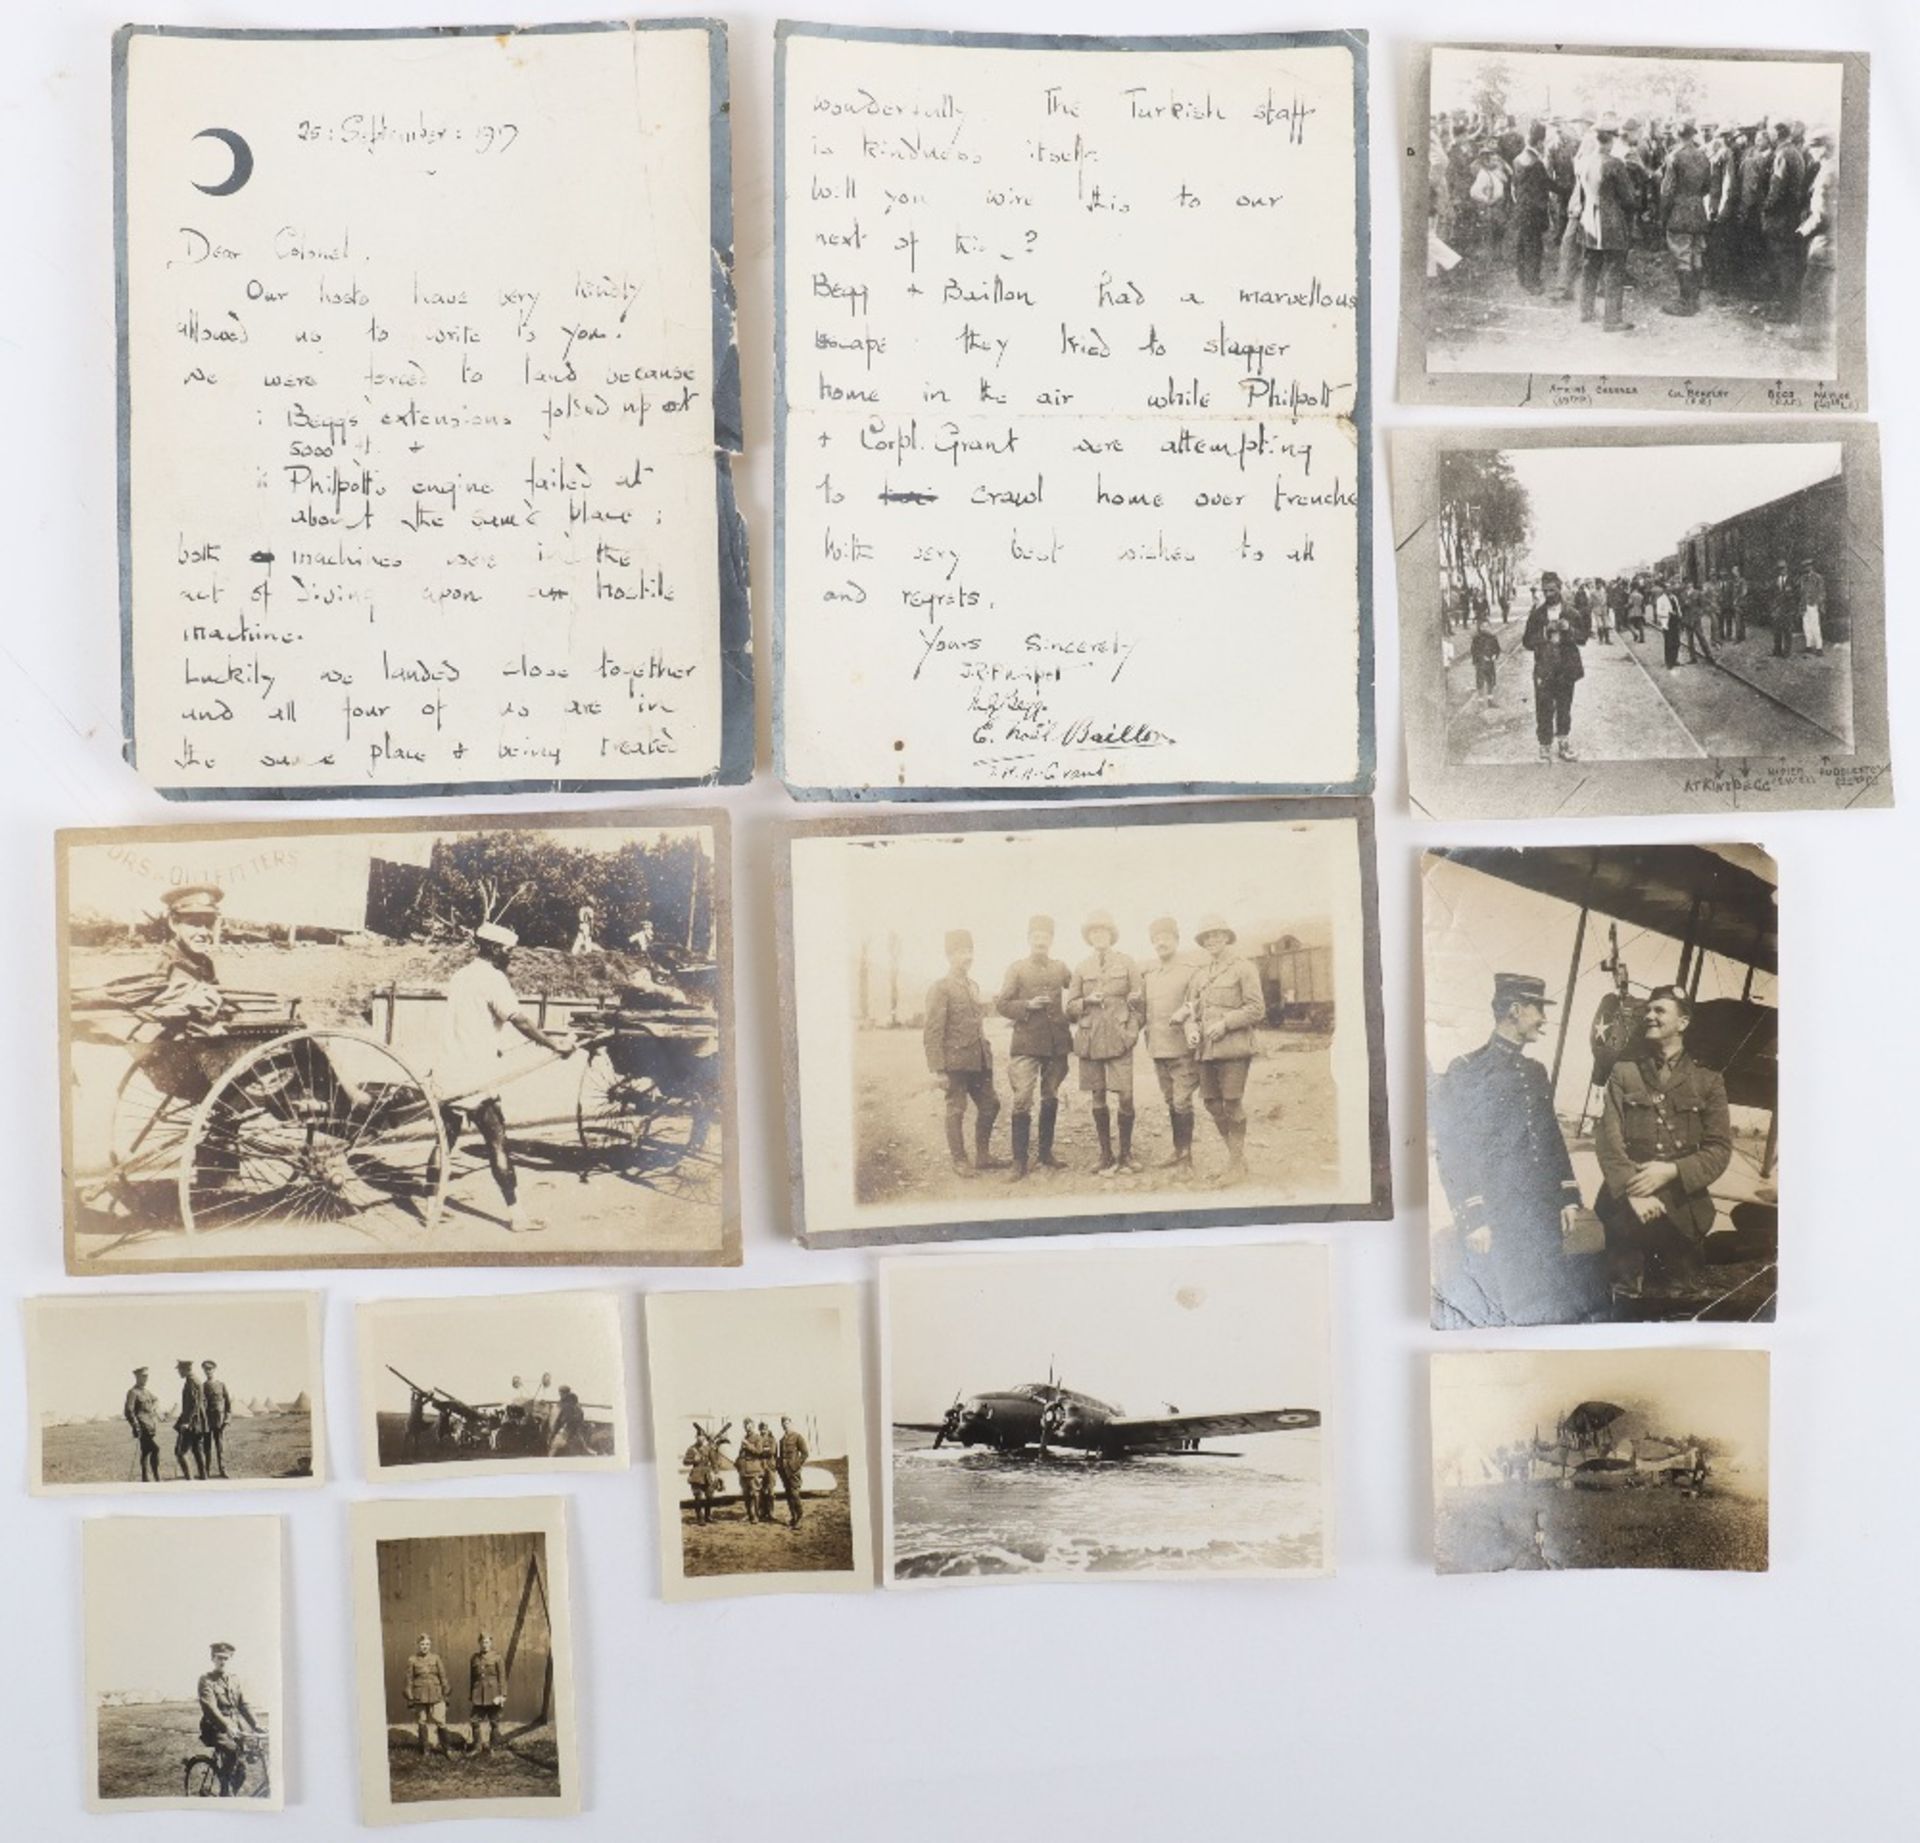 25 : September : 1917
Dear Colonel.
Our hosts have very kindly
allowed us to write to you.
We were forced to land because
i Beggs' extensions folded up at
5000 ft. +
ii Philpott's engine failed at
about the same place ;
both machines were in the
act of diving upon a hostile
machine.
Luckily we landed close together
and all four of us are in
the same place + being treated
wonderfully. The Turkish staff
is kindness itself.
Will you wire this to our
next of kin ?
Begg + Baillon had a marvellous
escape : they tried to stagger
home in the air while Philpott
+ Corpl. Grant were attempting
to crawl home over trenche
With very best wishes to all
and regrets.
Yours Sincerely
E. Noël Baillon.
Grant
ATKINS
COL BEMPLEY
BEGG
ATKINS BEGG NAPIER
ORS & OUTFITTERS